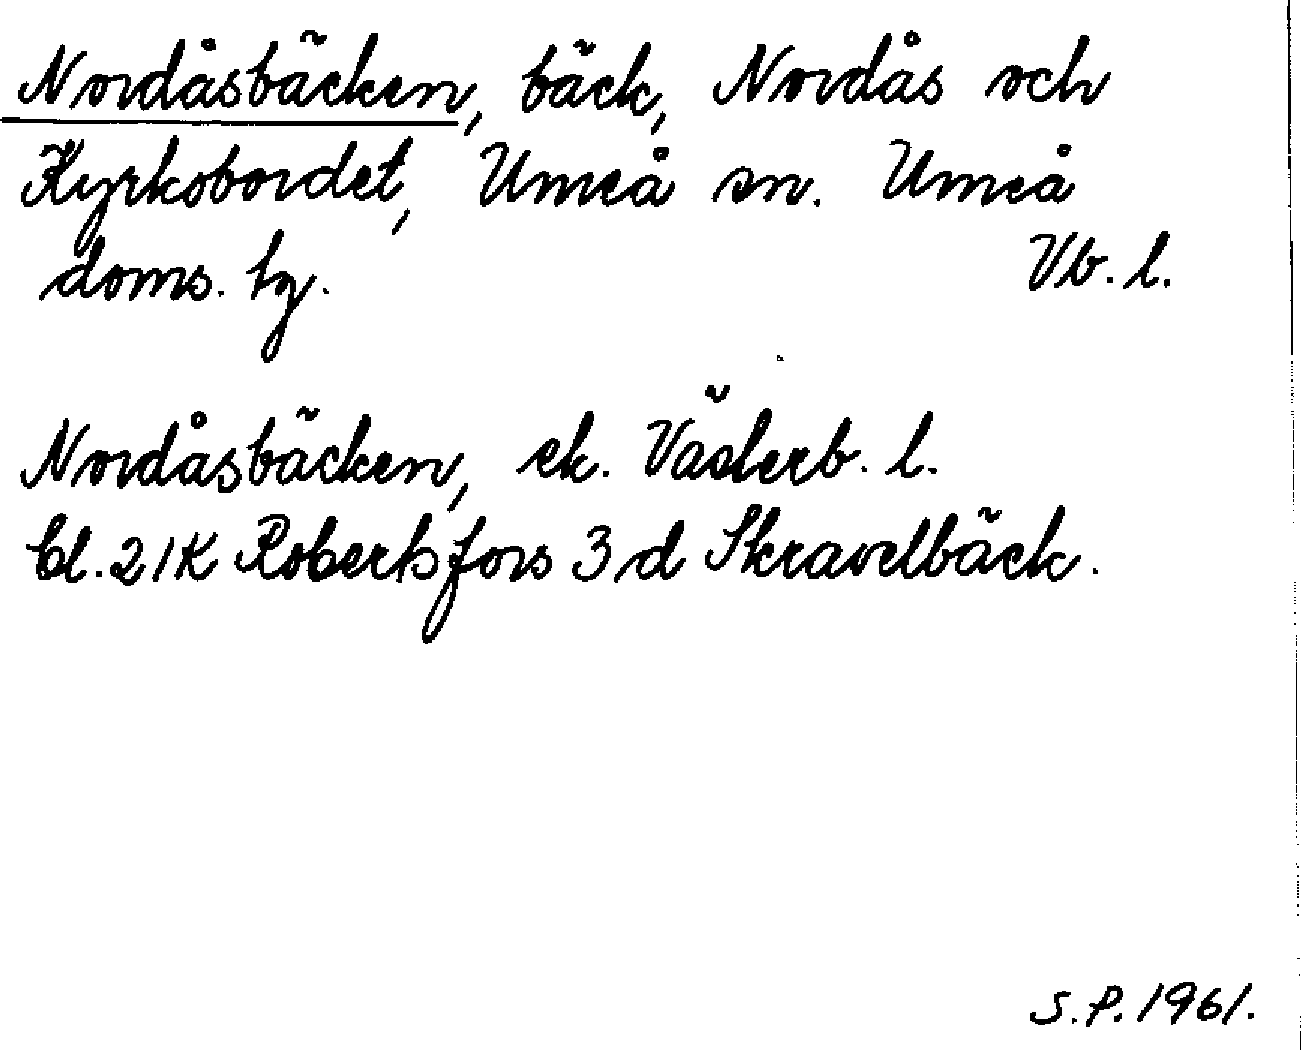 Nordåsbäcken, bäck, Nordås och
Kyrkobordet, Umeå sn. Umeå
doms. hg. Vb. l.
Nordåsbäcken, ek. Västerb. l.
bl. 21K Robertsfors 3d Skravelbäck.
S.P. 1961.